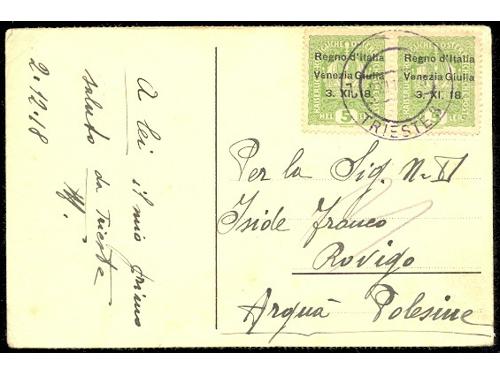 Regno d'Italia
Venezia Giulia
3. XI. 18.
5
Regno d'Italia
Venezia Giulia
3. XI. 18.
TRIESTE 3
A lei il mio primo
saluto da Trieste
2.12.18
Per la Sig. N-D
Iside Franco
Rovigo
Arquà Polesine